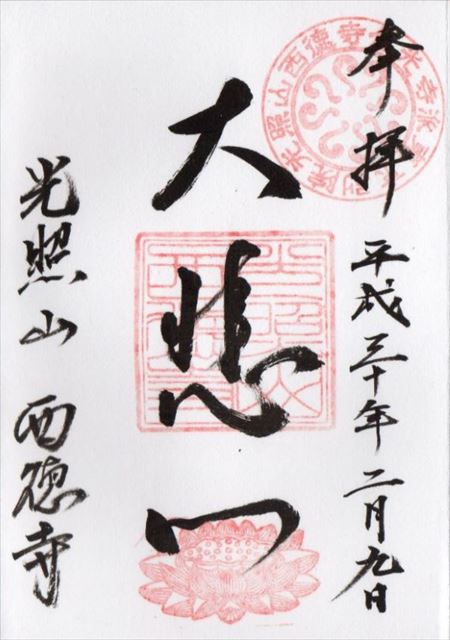 奉拝
平成三十年二月九日
大悲
光照山 西徳寺